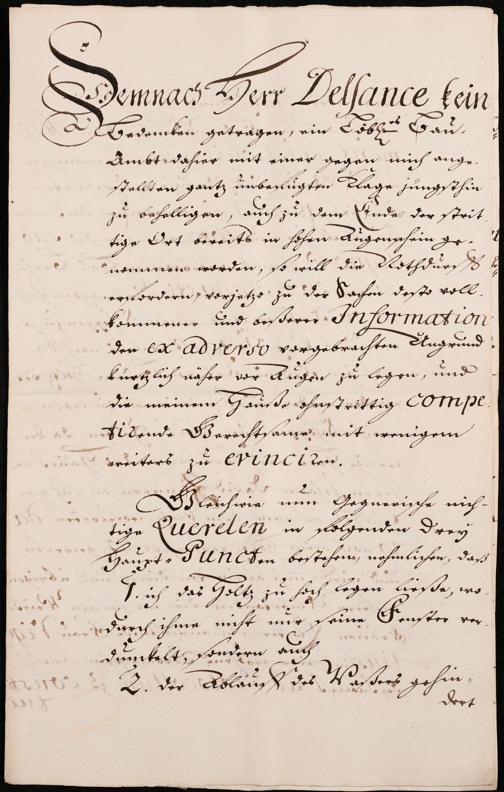 Demnach Herr Delsance kein
Bedencken getragen, ein Löbl. Bau-
Ambt dahier mit einer gegen mich ange-
stellten gantz unbefugten Klage jüngsthin
zu behelligen, auch zu dem Ende der strit-
tige Ort bereits in hohen Augenschein ge-
nommen worden, so will die Nothdurfft
erfordern, vorjetzo zu der Sachen desto voll-
kommener und beßerer Information
den ex adverso vorgebrachten Ungrund
kürtzlich näher vor Augen zu legen, und
die meinem Hauße ohnstrittig compe-
tirende Gerechtsame mit wenigem
weiters zu evinciren.
Gleichwie nun Gegnerische nich-
tige Querelen in folgenden drey
Haupt-Puncten bestehen, nehmlichen, daß
1. ich das Holtz zu hoch legen ließe, wo-
durch ihme nicht nur seine Fenster ver-
dunckelt, sondern auch
2. der Ablauff des Waßers gehin-
dert